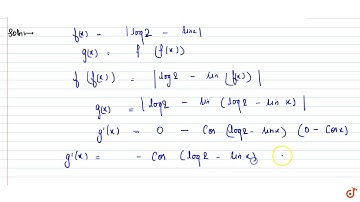 Soln→ f(x) = |log2 - sinx|
g(x) = f (f(x))
f (f(x)) = |log2 - sin (f(x))|
g(x) = |log2 - sin (log2 - sin x)|
g'(x) = 0 - Cos (log2 - sinx) (0 - Cosx)
g'(x) = - Cos (log2 - sin x)